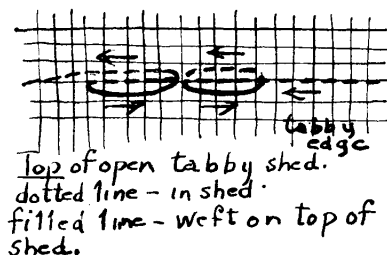 tabby
edge
Top of open tabby shed.
dotted line - in shed.
filled line - weft on top of
shed.